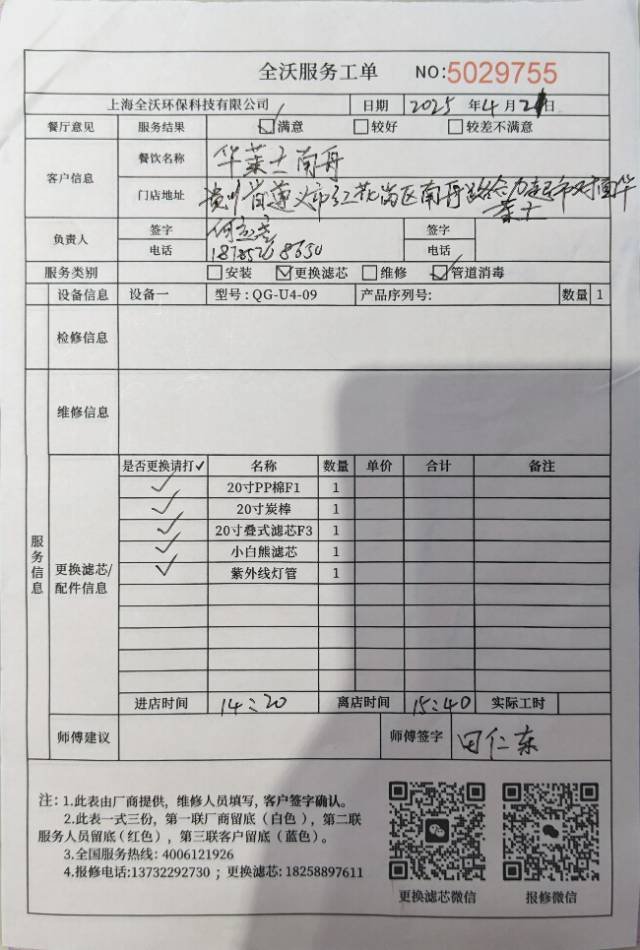 全沃服务工单 NO:5029755
上海全沃环保科技有限公司 日期 2025 年 4 月 21 日
餐厅意见 服务结果 ☑满意 □较好 □较差不满意
客户信息 餐饮名称 华莱士南舟
门店地址 贵州省遵义市红花岗区南舟路合力超市对面华
莱士
负责人 签字 签字
电话 电话
服务类别 □安装 ☑更换滤芯 □维修 ☑管道消毒
设备信息 设备一 型号:QG-U4-09 产品序列号: 数量 1
检修信息
维修信息
服务信息
更换滤芯/配件信息
是否更换请打✓ 名称 数量 单价 合计 备注
✓ 20寸PP棉F1 1
✓ 20寸炭棒 1
✓ 20寸叠式滤芯F3 1
✓ 小白熊滤芯 1
✓ 紫外线灯管 1
进店时间 14:20 离店时间 15:40 实际工时
师傅建议 师傅签字 田仁东
注: 1.此表由厂商提供，维修人员填写, 客户签字确认。
2.此表一式三份，第一联厂商留底 (白色 )，第二联
服务人员留底(红色) ，第三联客户留底（蓝色）。
3.全国服务热线: 4006121926
4.报修电话:13732292730 ; 更换滤芯: 18258897611
更换滤芯微信 报修微信